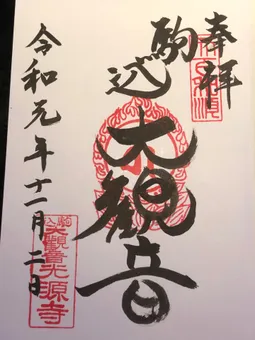 奉拝
駒込
大觀音
令和元年十一月二日
駒込
大觀音光源寺